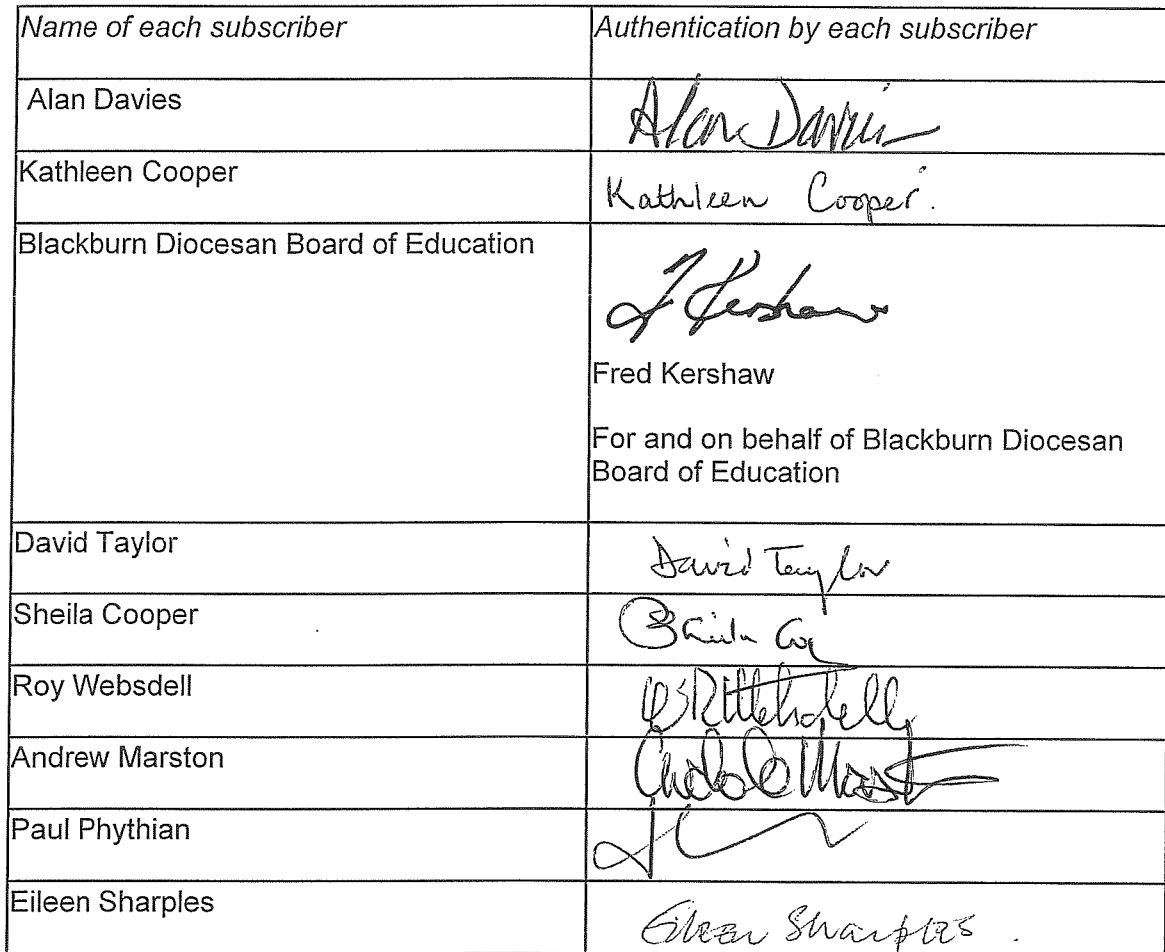 Name of each subscriber Authentication by each subscriber
Alan Davies Alan Davies
Kathleen Cooper Kathleen Cooper.
Blackburn Diocesan Board of Education F Kershaw
Fred Kershaw
For and on behalf of Blackburn Diocesan
Board of Education
David Taylor David Taylor
Sheila Cooper Sheila
Roy Websdell Websdell
Andrew Marston
Paul Phythian
Eileen Sharples Eileen Sharples.